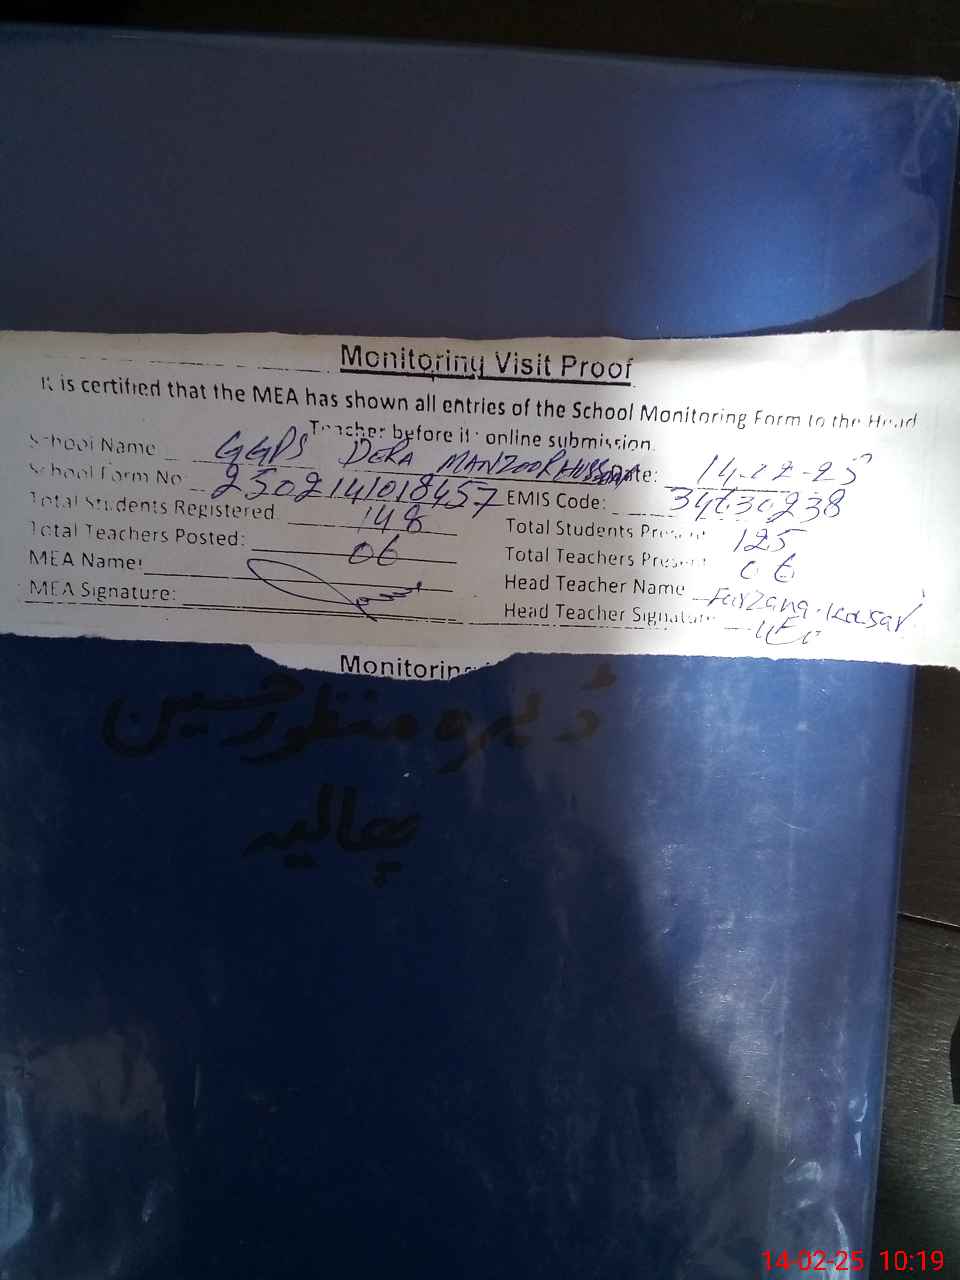 Monitoring Visit Proof
It is certified that the MEA has shown all entries of the School Monitoring Form to the Head
Teacher before its online submission.
School Name GGPS DERA MANZOOR HUSSAIN Date: 14-02-25
School Form No: 2502141018457 EMIS Code: 34430238
Total Students Registered 148 Total Students Present 125
Total Teachers Posted: 06 Total Teachers Present 06
MEA Name: Head Teacher Name Farzana Kousar
MEA Signature: Head Teacher Signature
Monitoring
ڈیرہ منظور حسین
پھالیہ
14-02-25 10:19